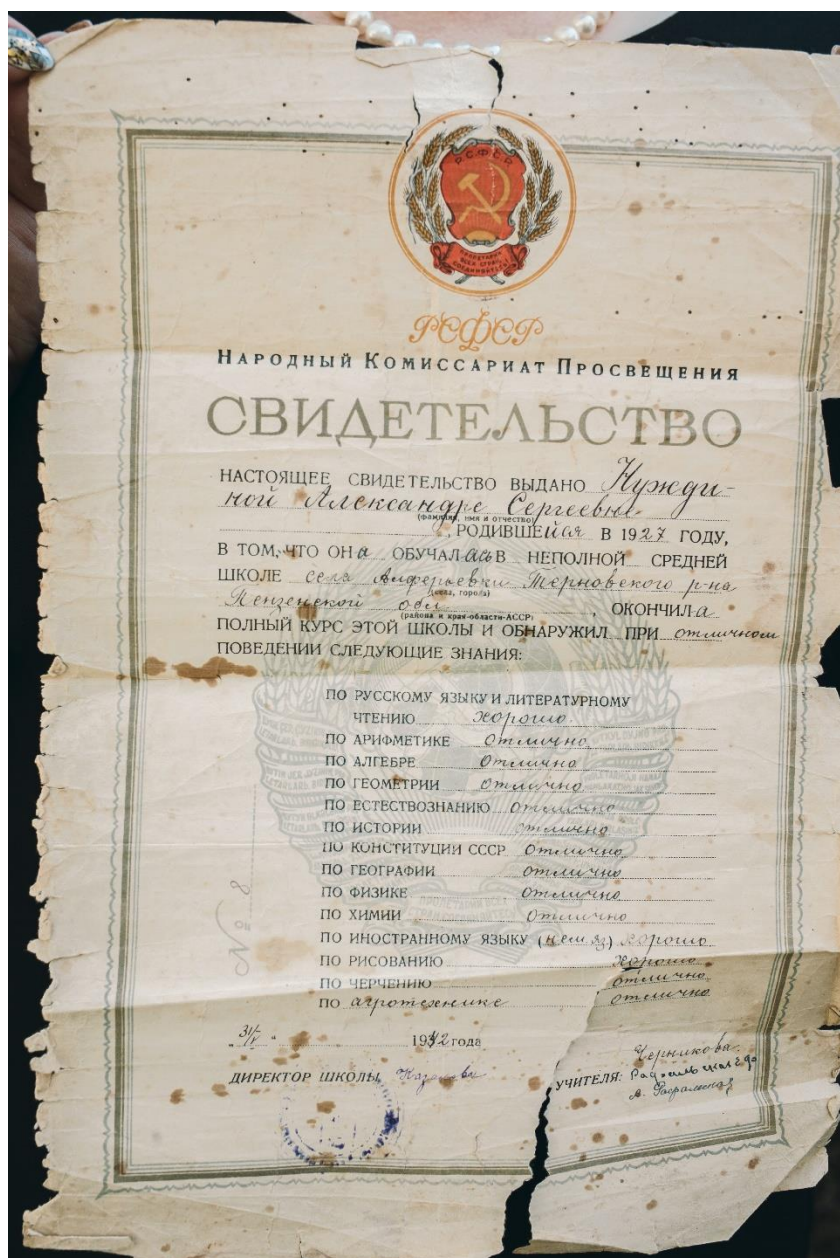 Р.С.Ф.С.Р.
ПРОЛЕТАРИИ
ВСЕХ СТРАН,
СОЕДИНЯЙТЕСЬ!
РСФСР
НАРОДНЫЙ КОМИССАРИАТ ПРОСВЕЩЕНИЯ
СВИДЕТЕЛЬСТВО
НАСТОЯЩЕЕ СВИДЕТЕЛЬСТВО ВЫДАНО Нужди-
ной Александре Сергеевне
(фамилия, имя и отчество)
, РОДИВШЕЙСЯ В 1927 ГОДУ,
В ТОМ, ЧТО ОНа ОБУЧАЛась В НЕПОЛНОЙ СРЕДНЕЙ
ШКОЛЕ села Алферьевки Терновского р-на
(села, города)
Пензенской обл , ОКОНЧИЛа
(района и края-области-АССР)
ПОЛНЫЙ КУРС ЭТОЙ ШКОЛЫ И ОБНАРУЖИЛ ПРИ отличном
ПОВЕДЕНИИ СЛЕДУЮЩИЕ ЗНАНИЯ:
ПО РУССКОМУ ЯЗЫКУ И ЛИТЕРАТУРНОМУ
ЧТЕНИЮ хорошо
ПО АРИФМЕТИКЕ отлично
ПО АЛГЕБРЕ отлично
ПО ГЕОМЕТРИИ отлично
ПО ЕСТЕСТВОЗНАНИЮ отлично
ПО ИСТОРИИ отлично
ПО КОНСТИТУЦИИ СССР отлично
ПО ГЕОГРАФИИ отлично
ПО ФИЗИКЕ отлично
ПО ХИМИИ отлично
ПО ИНОСТРАННОМУ ЯЗЫКУ (нем яз) хорошо
ПО РИСОВАНИЮ хорошо
ПО ЧЕРЧЕНИЮ отлично
ПО агротехнике отлично
№ 8
"31/V" 1942 года
ДИРЕКТОР ШКОЛЫ
УЧИТЕЛЯ: Черникова